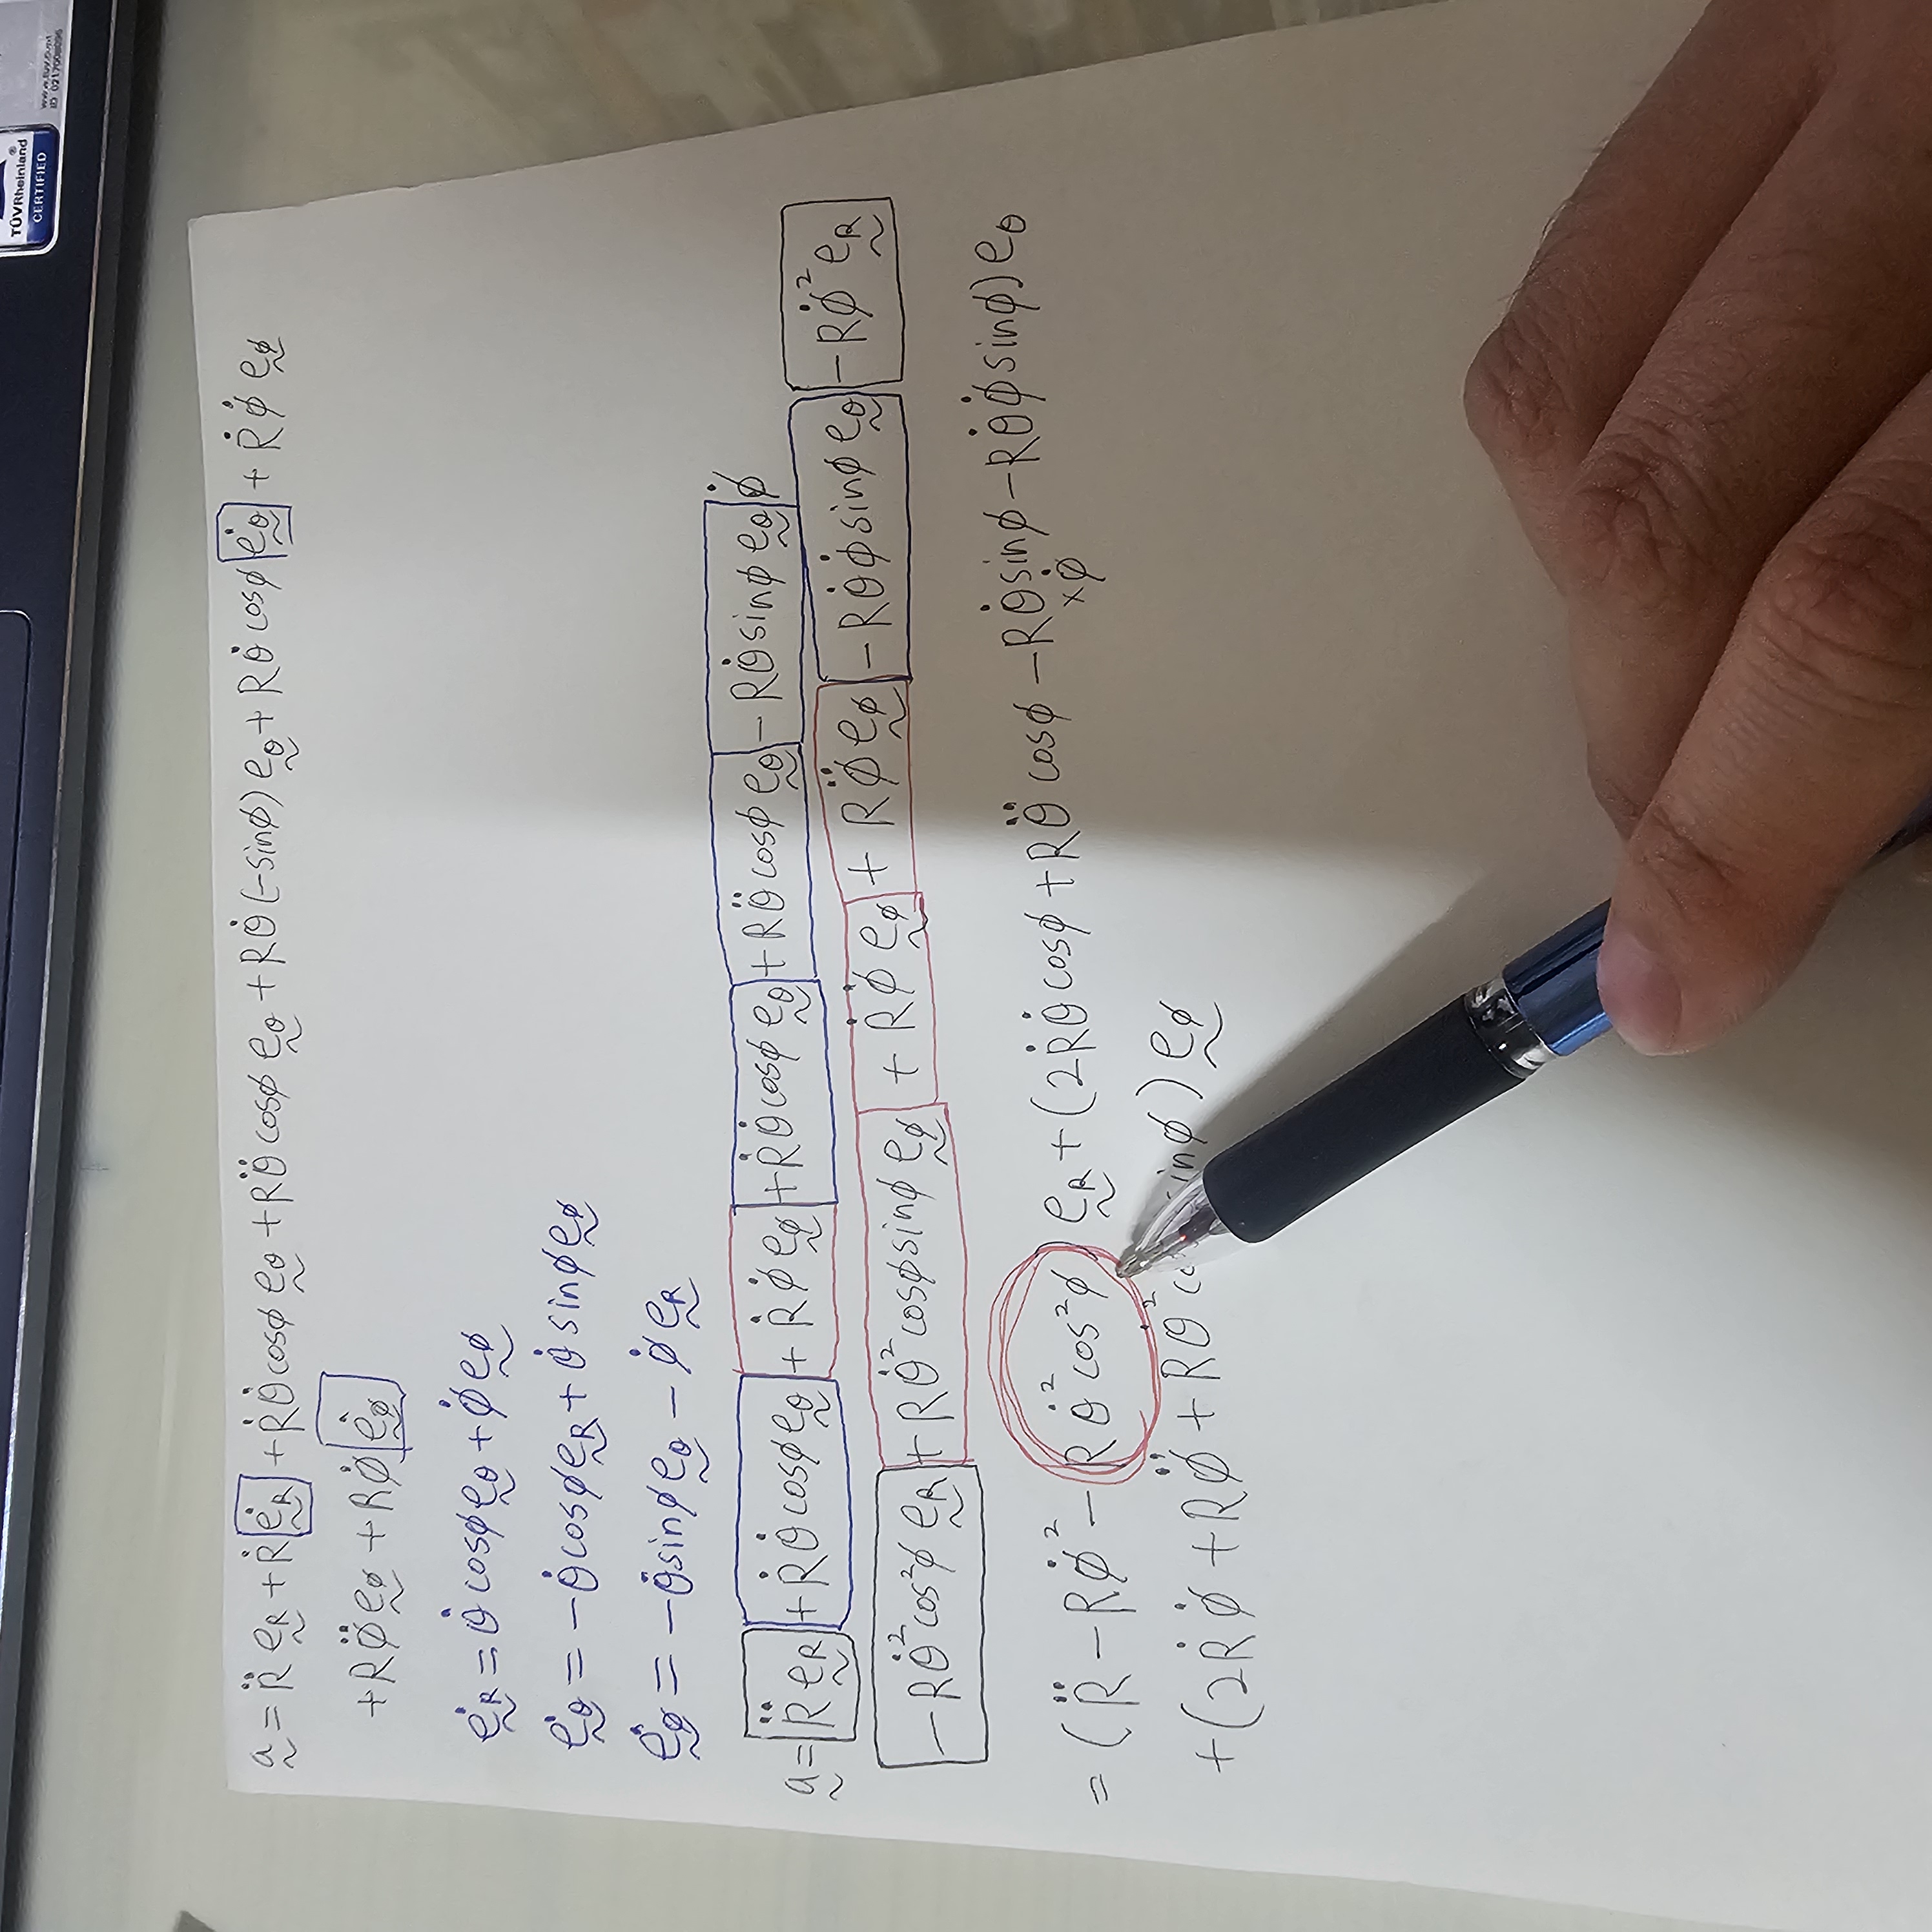 www.tuv.com
ID 0217008096
TÜVRheinland®
CERTIFIED
a = R̈ e_R + Ṙ ė_R + Ṙθ̇cosϕ e_θ + Rθ̈ cosϕ e_θ + Rθ̇(-sinϕ) e_θ + Rθ̇ cosϕ ė_θ + Ṙϕ̇ e_ϕ
+ Rϕ̈ e_ϕ + Rϕ̇ ė_ϕ
ė_R = θ̇ cosϕ e_θ + ϕ̇ e_ϕ
ė_θ = -θ̇ cosϕ e_R + θ̇ sinϕ e_ϕ
ė_ϕ = -θ̇ sinϕ e_θ - ϕ̇ e_R
a = R̈ e_R + Ṙθ̇ cosϕ e_θ + Ṙϕ̇ e_ϕ + Ṙθ̇ cosϕ e_θ + Rθ̈ cosϕ e_θ - Rθ̇ sinϕ e_θ ϕ̇
-Rθ̇² cos²ϕ e_R + Rθ̇² cosϕ sinϕ e_ϕ + Ṙϕ̇ e_ϕ + Rϕ̈ e_ϕ - Rθ̇ϕ̇ sinϕ e_θ - Rϕ̇² e_R
= (R̈ - Rϕ̇² - Rθ̇² cos²ϕ) e_R + (2Ṙθ̇ cosϕ + Rθ̈ cosϕ - Rθ̇ sinϕ - Rθ̇ϕ̇ sinϕ) e_θ
×ϕ̇
+ (2Ṙϕ̇ + Rϕ̈ + Rθ̇² inϕ) e_ϕ